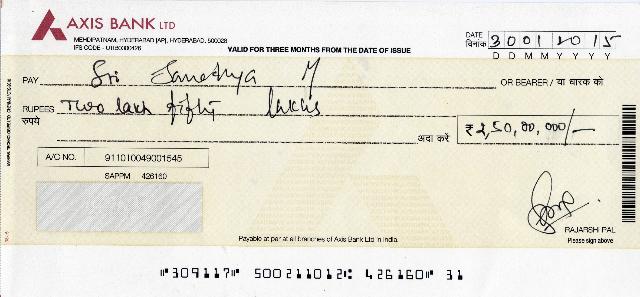 AXIS BANK LTD
MEHDIPATNAM, HYDERABAD [AP], HYDERABAD, 500028
IFS CODE - UTIB0000426
VALID FOR THREE MONTHS FROM THE DATE OF ISSUE
DATE
दिनांक 30012015
D D M M Y Y Y Y
PAY Sri M OR BEARER / या धारक को
RUPEES Two lakh fifty lakhs
रुपये
अदा करें ₹ 2,50,00,000/-
A/C NO. 911010049001545
SAPPM 426160
RAJARSHI PAL
Payable at par at all branches of Axis Bank Ltd in India.
Please sign above
"309117" 500211012: 426160" 31